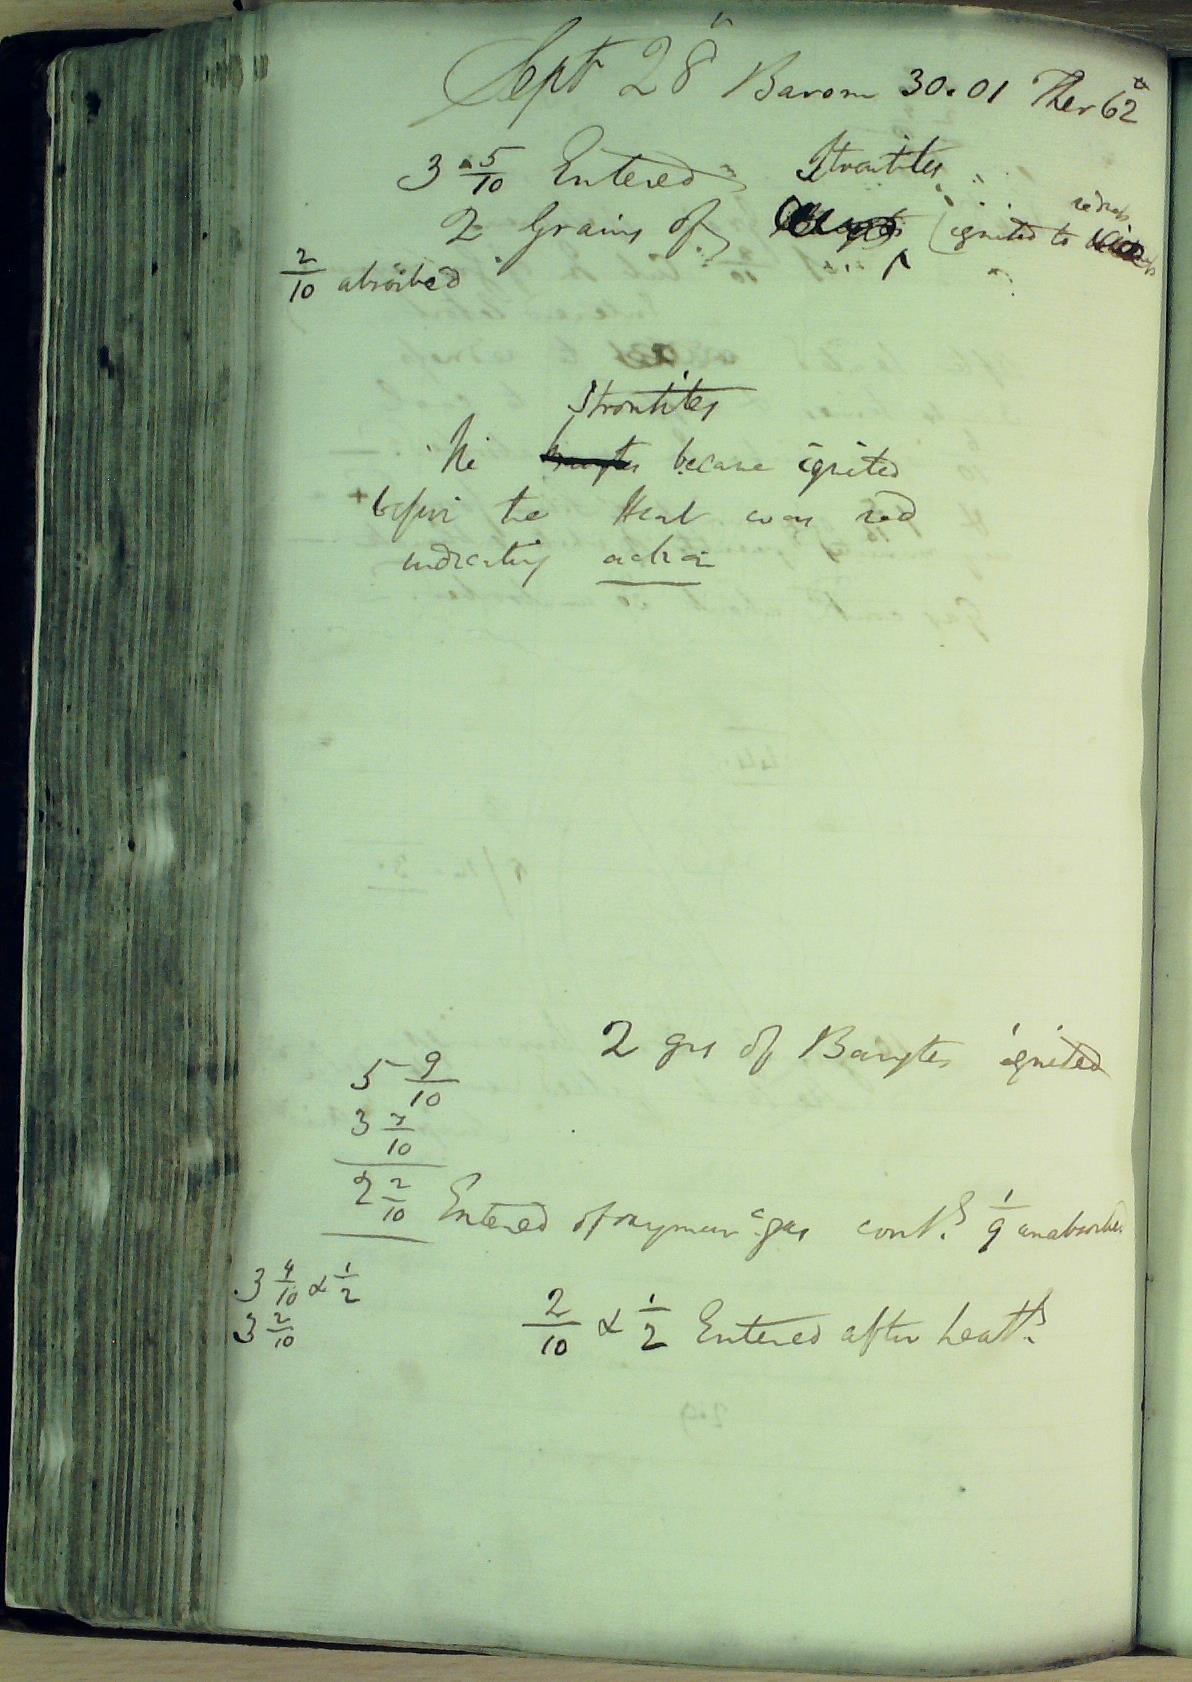 Sept 28 Barom 30.01 Ther 62
3 5/10 Entered Strontites
2 Grains of Barytes (ignited to redness
2/10 absorbed
Strontites
The Barytes became ignited
before the Heat was red
indicating action
2 grs of Barytes ignited
5 9/10
3 7/10
2 2/10 Entered of oxymurc gas cont.g 1/9 unabsorbed
3 4/10 & 1/2
3 2/10
2/10 & 1/2 Entered after heat.g